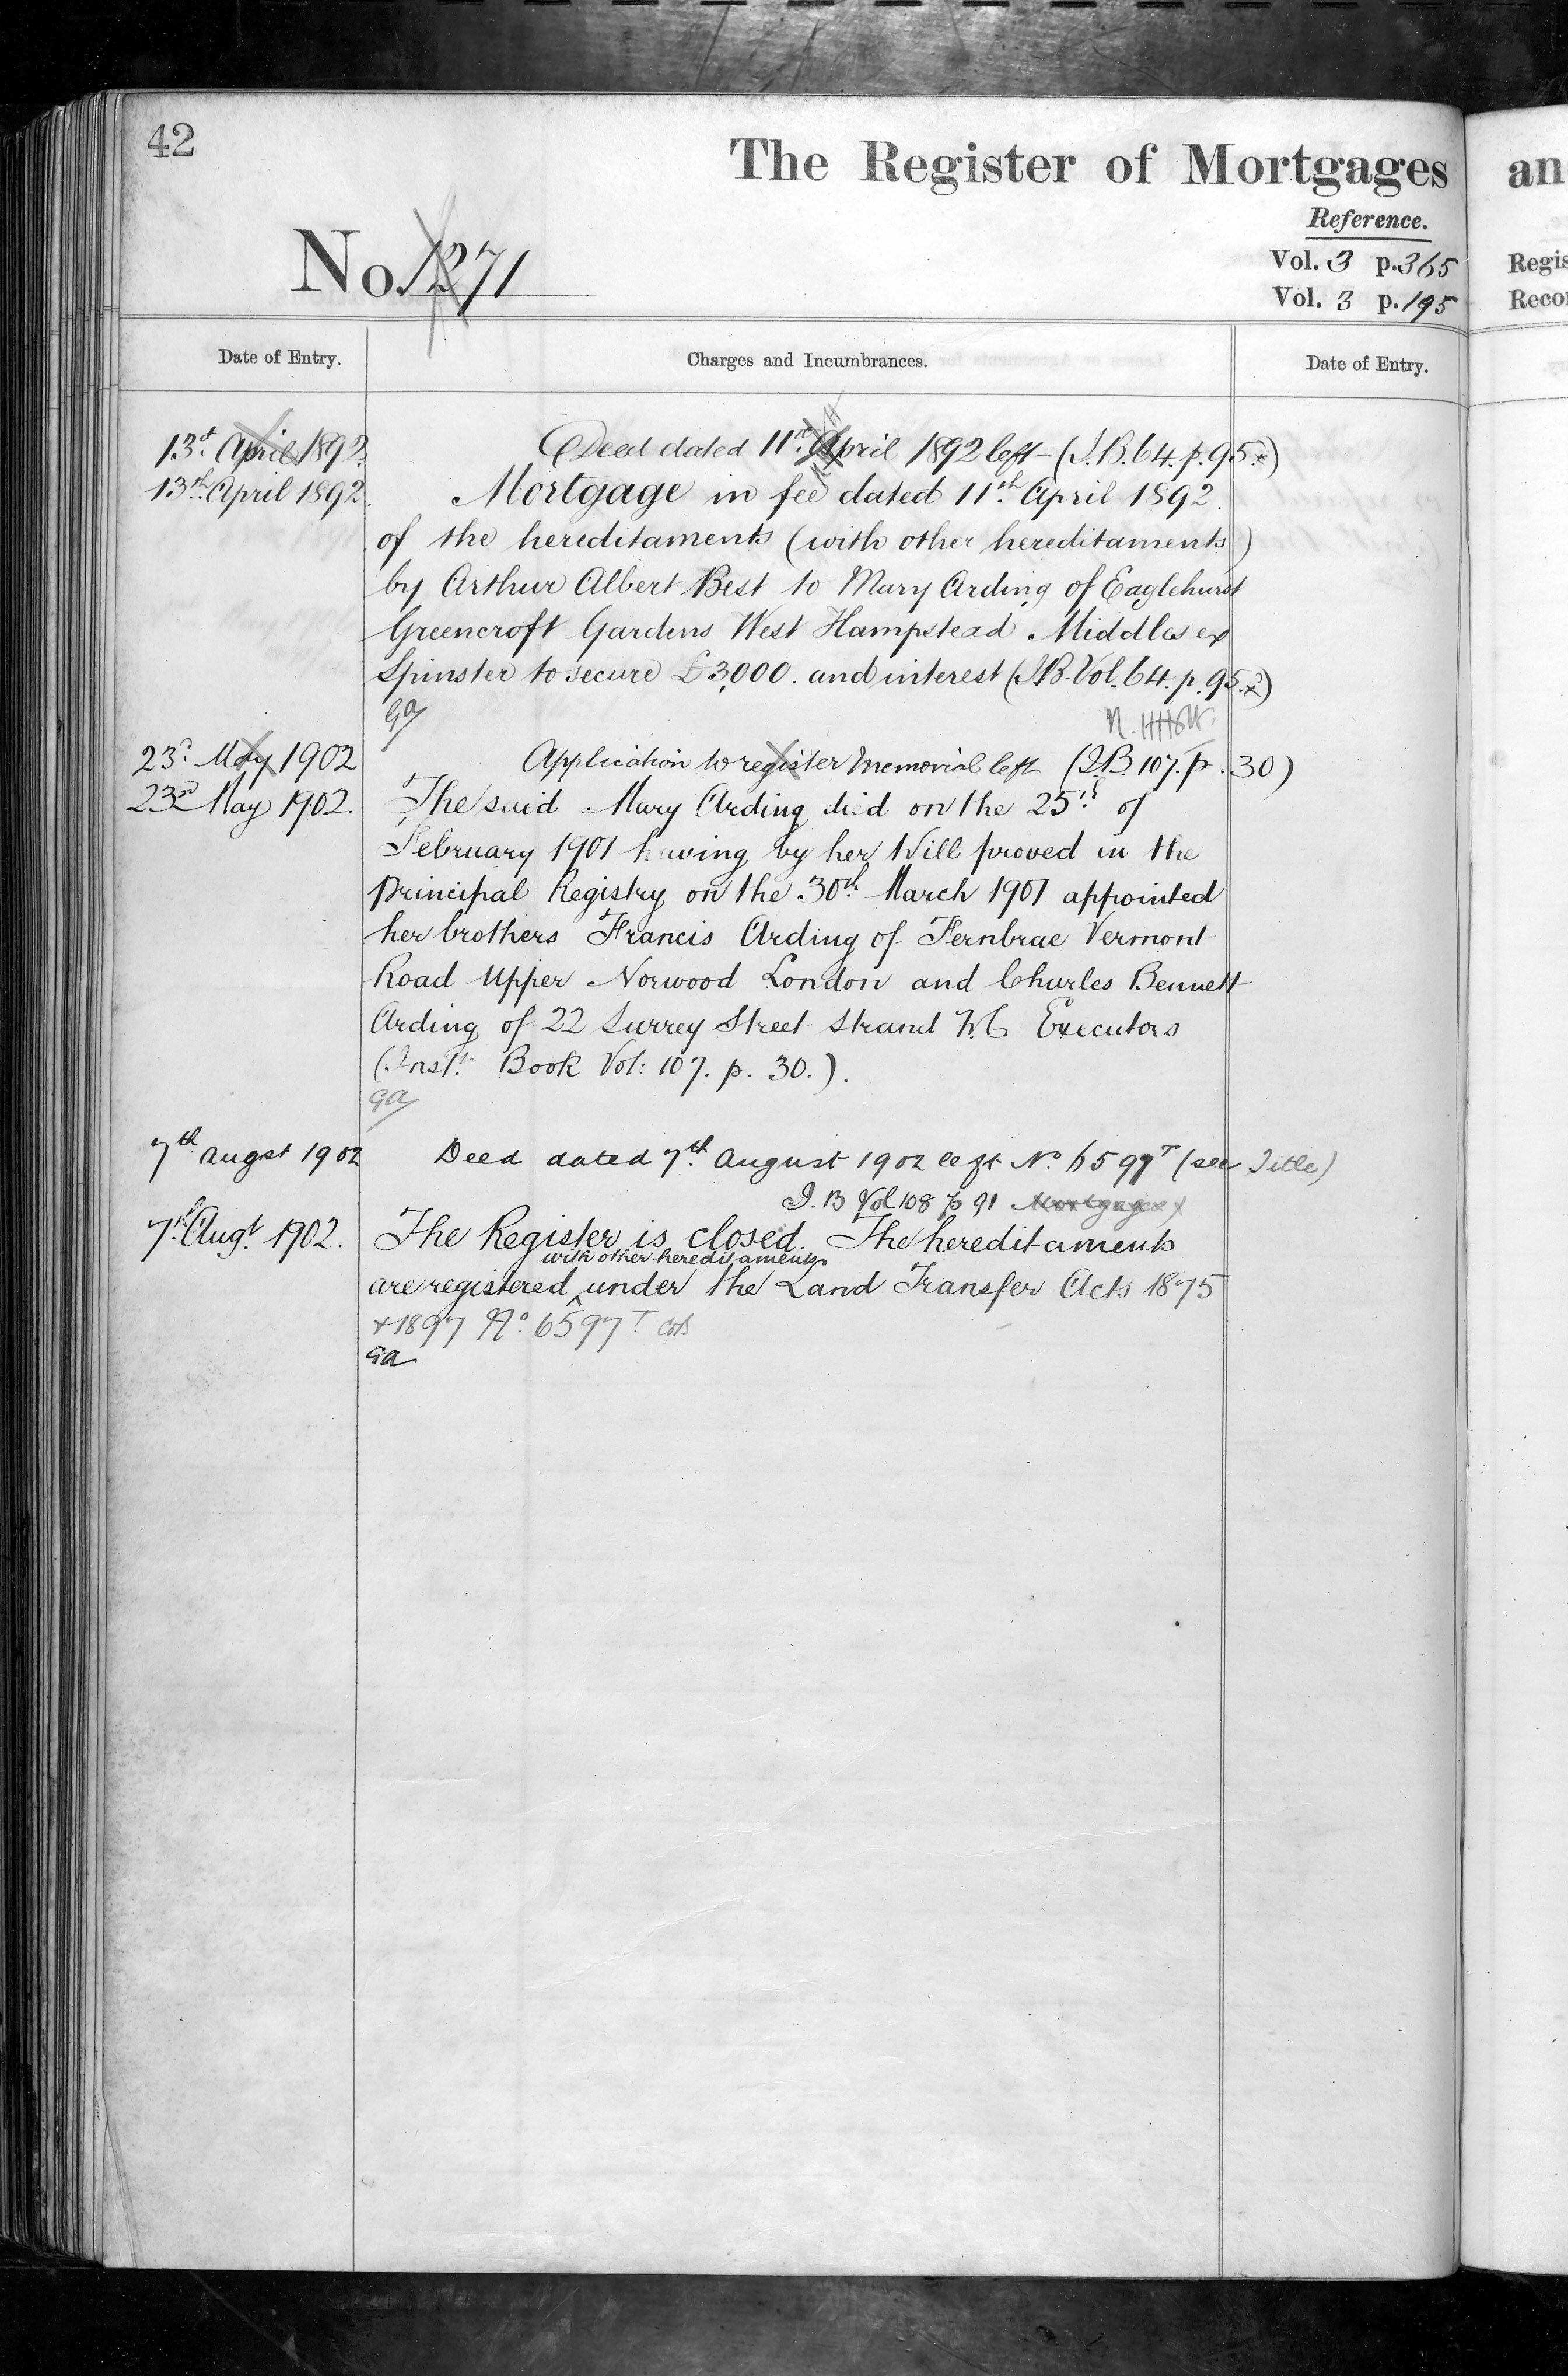 42
The Register of Mortgages
an
Reference.
No. 1271
Vol. 3 p. 365
Regis
Vol. 3 p. 195
Recor
Date of Entry.
Charges and Incumbrances.
Date of Entry.
13th April 1892. Deed dated 11th April 1892 left (I.B. 64. p. 95.)
13th April 1892. Mortgage in fee dated 11th April 1892.
of the hereditaments (with other hereditaments)
by Arthur Albert Best to Mary Arding of Eaglehurst
Greencroft Gardens West Hampstead Middlesex
Spinster to secure £3,000. and interest (I.B. Vol. 64. p. 95.)
GA
23rd May 1902 Application to register Memorial left (I.B. 107. p. 30)
23rd May 1902. The said Mary Arding died on the 25th of
February 1901 having by her Will proved in the
Principal Registry on the 30th March 1901 appointed
her brothers Francis Arding of Fernbrae Vermont
Road Upper Norwood London and Charles Bennett
Arding of 22 Surrey Street Strand W.C Executors
(Inst. Book Vol: 107. p. 30.).
GA
7th Augst 1902 Deed dated 7th August 1902 left No. 6597T (see Title)
I.B Vol 108 p 91 Mortgages)
7th Augt. 1902. The Register is closed. The hereditaments
with other hereditaments
are registered ^ under the Land Transfer Acts 1875
+ 1897 No. 6597T
GA